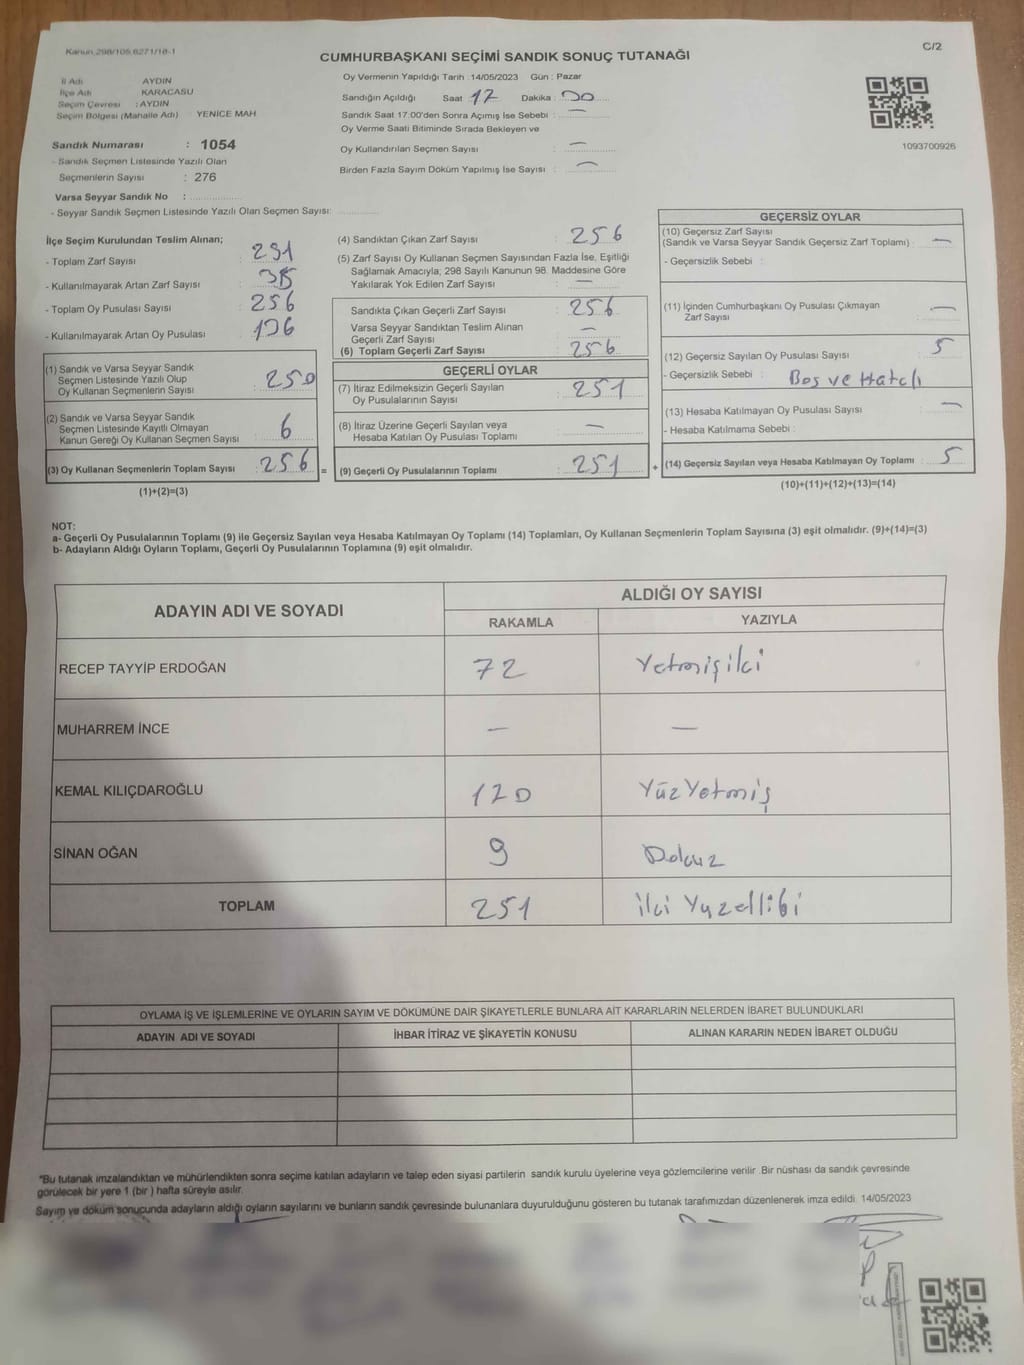 Kanun 298/105,6271/18-1
C/2
CUMHURBAŞKANI SEÇİMİ SANDIK SONUÇ TUTANAĞI
İl Adı AYDIN
İlçe Adı KARACASU
Seçim Çevresi : AYDIN
Seçim Bölgesi (Mahalle Adı) : YENİCE MAH
Sandık Numarası : 1054
- Sandık Seçmen Listesinde Yazılı Olan
Seçmenlerin Sayısı : 276
Varsa Seyyar Sandık No :
- Seyyar Sandık Seçmen Listesinde Yazılı Olan Seçmen Sayısı:
Oy Vermenin Yapıldığı Tarih : 14/05/2023 Gün : Pazar
Sandığın Açıldığı Saat 17 Dakika : 00
Sandık Saat 17.00'den Sonra Açımış İse Sebebi : —
Oy Verme Saati Bitiminde Sırada Bekleyen ve
Oy Kullandırılan Seçmen Sayısı : —
Birden Fazla Sayım Döküm Yapılmış İse Sayısı : —
1093700926
İlçe Seçim Kurulundan Teslim Alınan;
- Toplam Zarf Sayısı : 291
- Kullanılmayarak Artan Zarf Sayısı : 35
- Toplam Oy Pusulası Sayısı : 256
- Kullanılmayarak Artan Oy Pusulası :
(1) Sandık ve Varsa Seyyar Sandık
Seçmen Listesinde Yazılı Olup
Oy Kullanan Seçmenlerin Sayısı : 250
(2) Sandık ve Varsa Seyyar Sandık
Seçmen Listesinde Kayıtlı Olmayan
Kanun Gereği Oy Kullanan Seçmen Sayısı : 6
(3) Oy Kullanan Seçmenlerin Toplam Sayısı : 256 =
(1)+(2)=(3)
(4) Sandıktan Çıkan Zarf Sayısı : 256
(5) Zarf Sayısı Oy Kullanan Seçmen Sayısından Fazla İse, Eşitliği
Sağlamak Amacıyla, 298 Sayılı Kanunun 98. Maddesine Göre
Yakılarak Yok Edilen Zarf Sayısı : —
Sandıkta Çıkan Geçerli Zarf Sayısı : 256
Varsa Seyyar Sandıktan Teslim Alınan
Geçerli Zarf Sayısı : —
(6) Toplam Geçerli Zarf Sayısı : 256
GEÇERLİ OYLAR
(7) İtiraz Edilmeksizin Geçerli Sayılan
Oy Pusulalarının Sayısı : 251
(8) İtiraz Üzerine Geçerli Sayılan veya
Hesaba Katılan Oy Pusulası Toplamı : —
(9) Geçerli Oy Pusulalarının Toplamı : 251 +
GEÇERSİZ OYLAR
(10) Geçersiz Zarf Sayısı
(Sandık ve Varsa Seyyar Sandık Geçersiz Zarf Toplamı) : —
- Geçersizlik Sebebi :
(11) İçinden Cumhurbaşkanı Oy Pusulası Çıkmayan
Zarf Sayısı : —
(12) Geçersiz Sayılan Oy Pusulası Sayısı : 5
- Geçersizlik Sebebi : Boş ve Hatalı
(13) Hesaba Katılmayan Oy Pusulası Sayısı : —
- Hesaba Katılmama Sebebi :
(14) Geçersiz Sayılan veya Hesaba Katılmayan Oy Toplamı : 5
(10)+(11)+(12)+(13)=(14)
NOT:
a- Geçerli Oy Pusulalarının Toplamı (9) ile Geçersiz Sayılan veya Hesaba Katılmayan Oy Toplamı (14) Toplamları, Oy Kullanan Seçmenlerin Toplam Sayısına (3) eşit olmalıdır. (9)+(14)=(3)
b- Adayların Aldığı Oyların Toplamı, Geçerli Oy Pusulalarının Toplamına (9) eşit olmalıdır.
ADAYIN ADI VE SOYADI ALDIĞI OY SAYISI
RAKAMLA YAZIYLA
RECEP TAYYİP ERDOĞAN 72 Yetmişiki
MUHARREM İNCE — —
KEMAL KILIÇDAROĞLU 170 YüzYetmiş
SİNAN OĞAN 9 Dokuz
TOPLAM 251 iki Yuzellibi
OYLAMA İŞ VE İŞLEMLERİNE VE OYLARIN SAYIM VE DÖKÜMÜNE DAİR ŞİKAYETLERLE BUNLARA AİT KARARLARIN NELERDEN İBARET BULUNDUKLARI
ADAYIN ADI VE SOYADI İHBAR İTİRAZ VE ŞİKAYETİN KONUSU ALINAN KARARIN NEDEN İBARET OLDUĞU
*Bu tutanak imzalandıktan ve mühürlendikten sonra seçime katılan adayların ve talep eden siyasi partilerin sandık kurulu üyelerine veya gözlemcilerine verilir. Bir nüshası da sandık çevresinde
görülecek bir yere 1 (bir) hafta süreyle asılır.
Sayım ve döküm sonucunda adayların aldığı oyların sayılarını ve bunların sandık çevresinde bulunanlara duyurulduğunu gösteren bu tutanak tarafımızdan düzenlenerek imza edildi. 14/05/2023